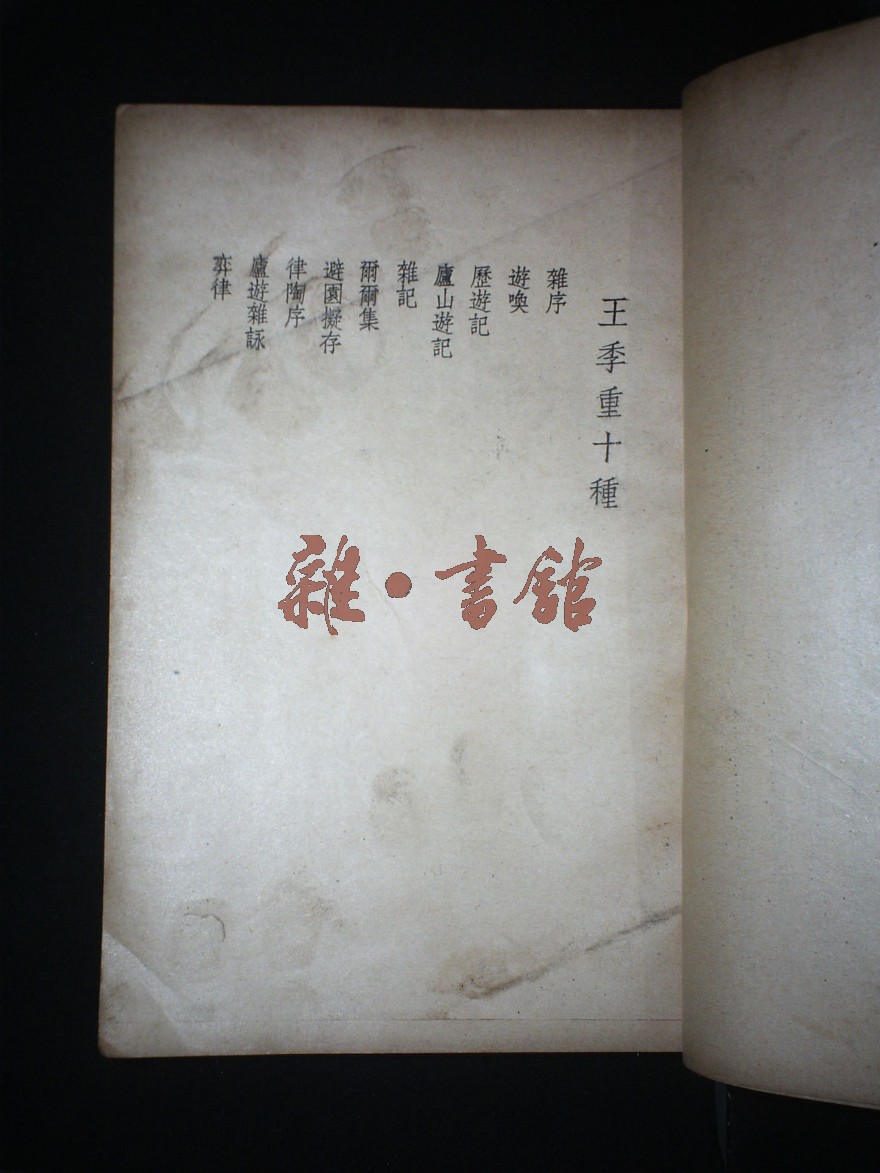 王季重十種
雜序
遊喚
歷遊記
廬山遊記
雜記
爾爾集
避園擬存
律陶序
廬遊雜詠
弈律
雜·書館